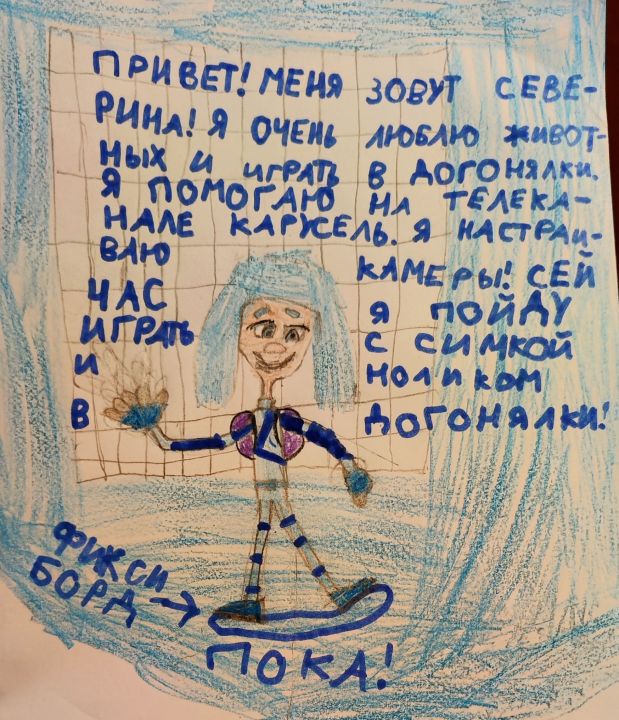 ПРИВЕТ! МЕНЯ ЗОВУТ СЕВЕ-
РИНА! Я ОЧЕНЬ ЛЮБЛЮ ЖИВОТ-
НЫХ И ИГРАТЬ В ДОГОНЯЛКИ.
Я ПОМОГАЮ НА ТЕЛЕКА-
НАЛЕ КАРУСЕЛЬ. Я НАСТРАИ-
ВАЮ КАМЕРЫ! СЕЙ
ЧАС Я ПОЙДУ
ИГРАТЬ С СИМКОЙ
И НОЛИКОМ
В ДОГОНЯЛКИ!
ФИКСИ
БОРД →
ПОКА!